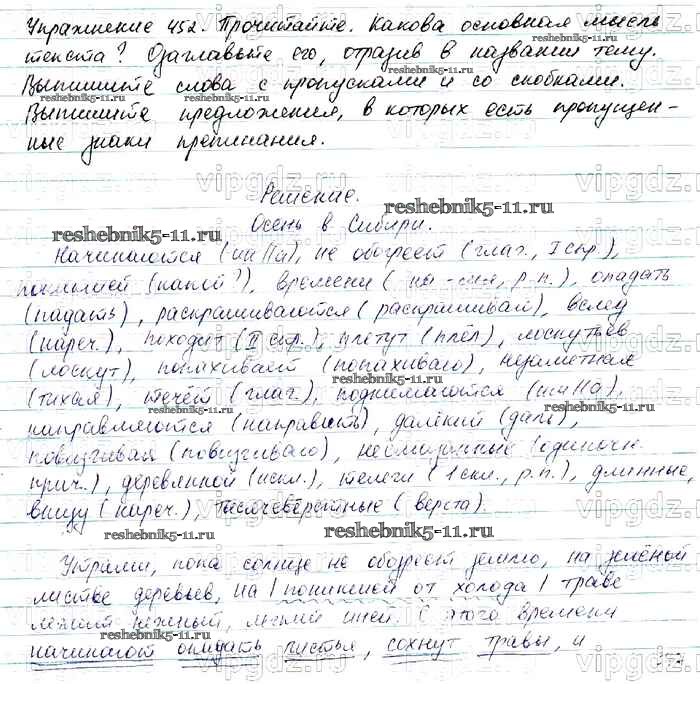 Упражнение 452. Прочитайте. Какова основная мысль
текста? Озаглавьте его, отразив в названии тему.
Выпишите слова с пропусками и со скобками.
Выпишите предложения, в которых есть пропущен-
ные знаки препинания.
Решение.
Осень в Сибири.
Начинаются (что делают), не обогреет (глаг., I спр.),
поникшей (какой?), времени (на -мя, р.п.), опадать
(падать), раскрашиваются (раскрашивал), вслед
(нареч.), походит (II спр.), плетут (плёл), лоскутьев
(лоскут), попахивает (попахиваю), незаметная
(тихая), течёт (глаг.), поднимаются
направляются (направить), далёкий (даль),
повизгивая (повизгиваю), несмазанные (одиночн.
прич.), деревянной (искл.), телеги (1 скл., р.п.), длинные,
внизу (нареч.), тысячевёрстные (верста).
Утрами, пока солнце не обогреет землю, на зелёной
листве деревьев, на | поникшей от холода | траве
лежит нежный, лёгкий иней. С этого времени
начинают опадать листья, сохнут травы, и
vipgdz.ru
reshebnik5-11.ru